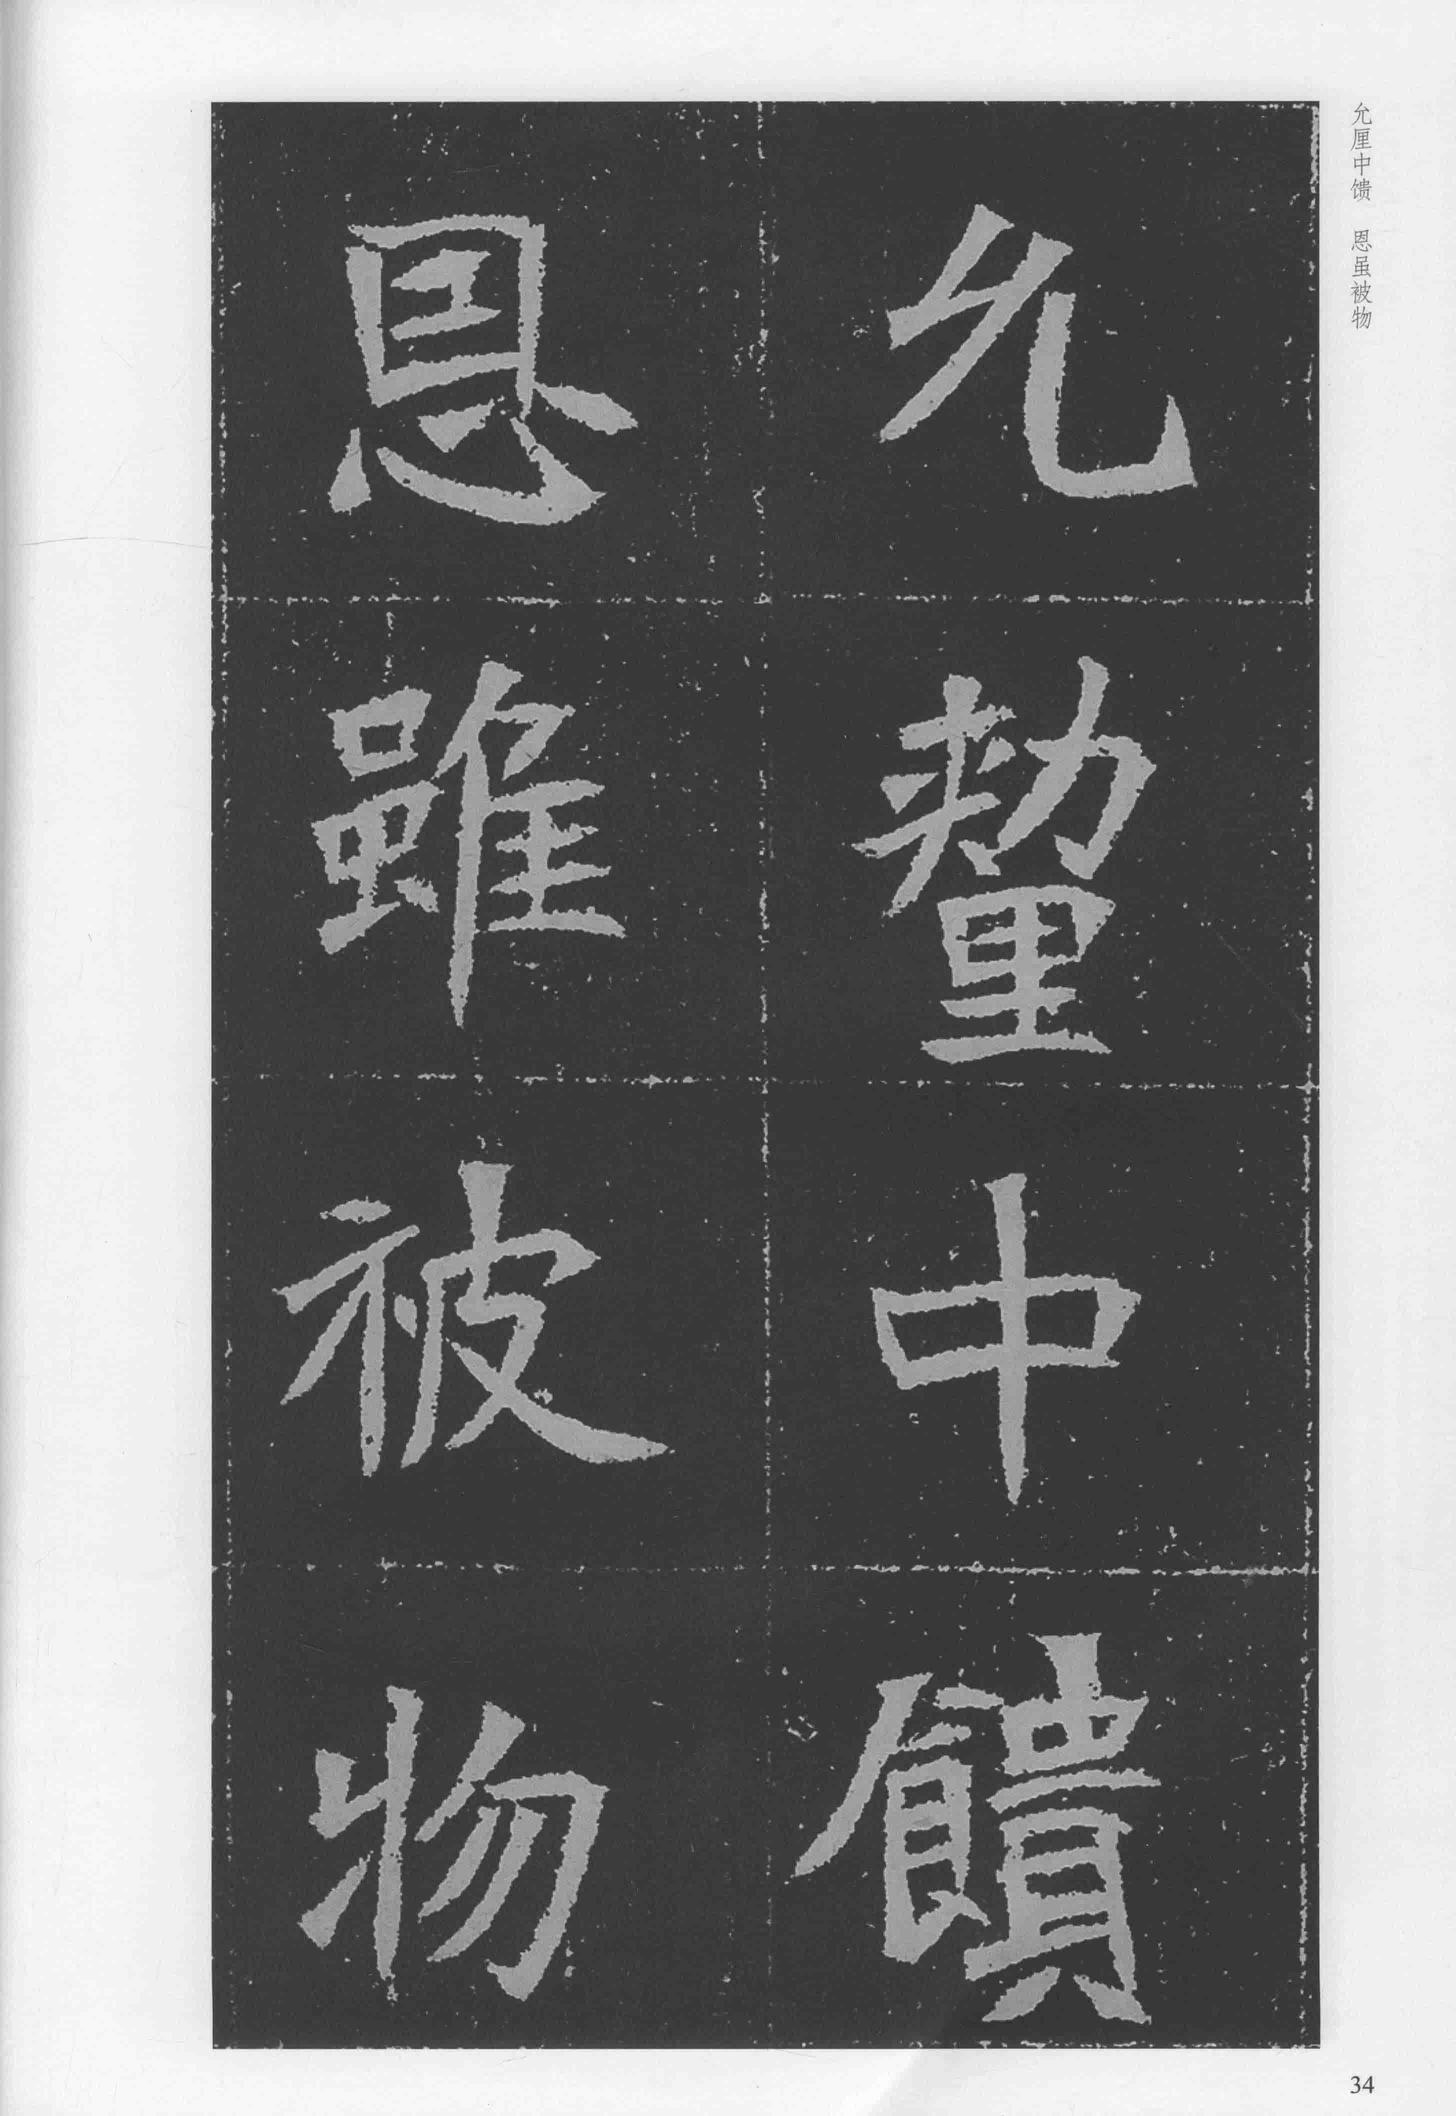 允厘中馈　恩虽被物
允釐中饋
恩雖被物
34